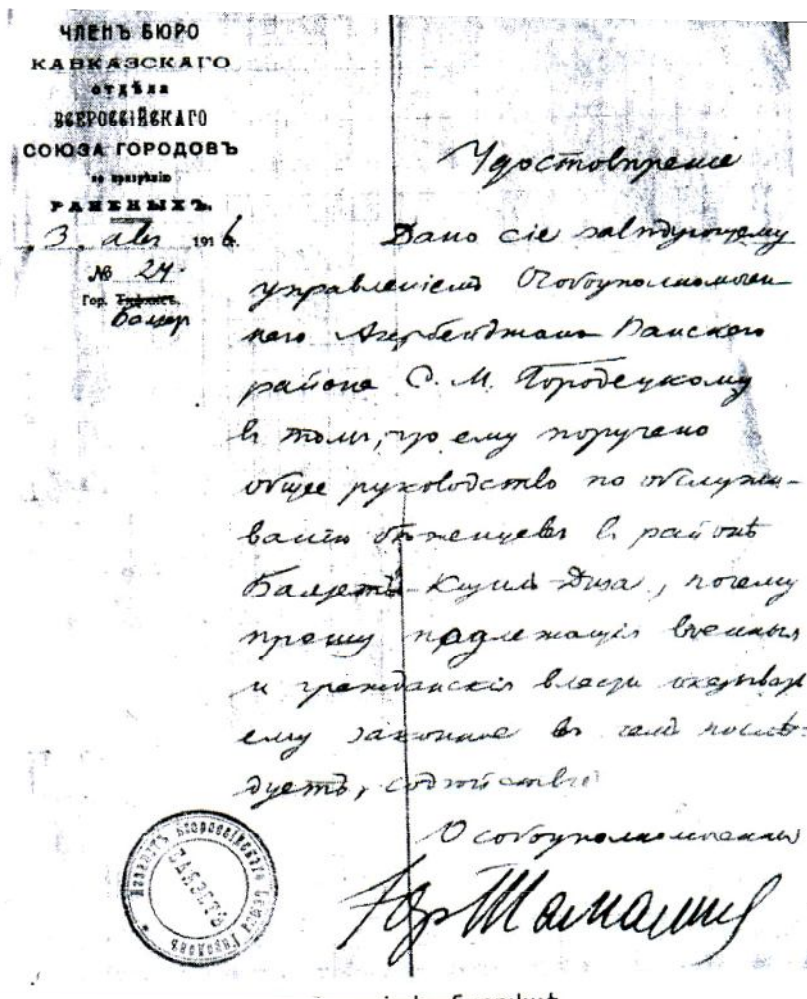 ЧЛЕНЪ БЮРО
КАВКАЗСКАГО
отдѣла
ВСЕРОССІЙСКАГО
СОЮЗА ГОРОДОВЪ
по призрѣнію
РАНЕНЫХЪ.
3 апр 1916 г.
№ 24.
Гор. Тифлисъ,
Удостовѣреніе
Дано сіе завѣдующему
управленіемъ Особоуполномочен-
наго Азербейджано Ванскаго
района С. М. Городецкому
въ томъ, что ему поручено
общее руководство по обслужи-
ванію бѣженцевъ въ районѣ
Кизил-Диза, почему
прошу надлежащія военныя
и гражданскія власти оказывать
ему законное въ чемъ послѣ-
дуетъ, содѣйствіе
Особоуполномоченный
Всероссійскаго Союза Городовъ